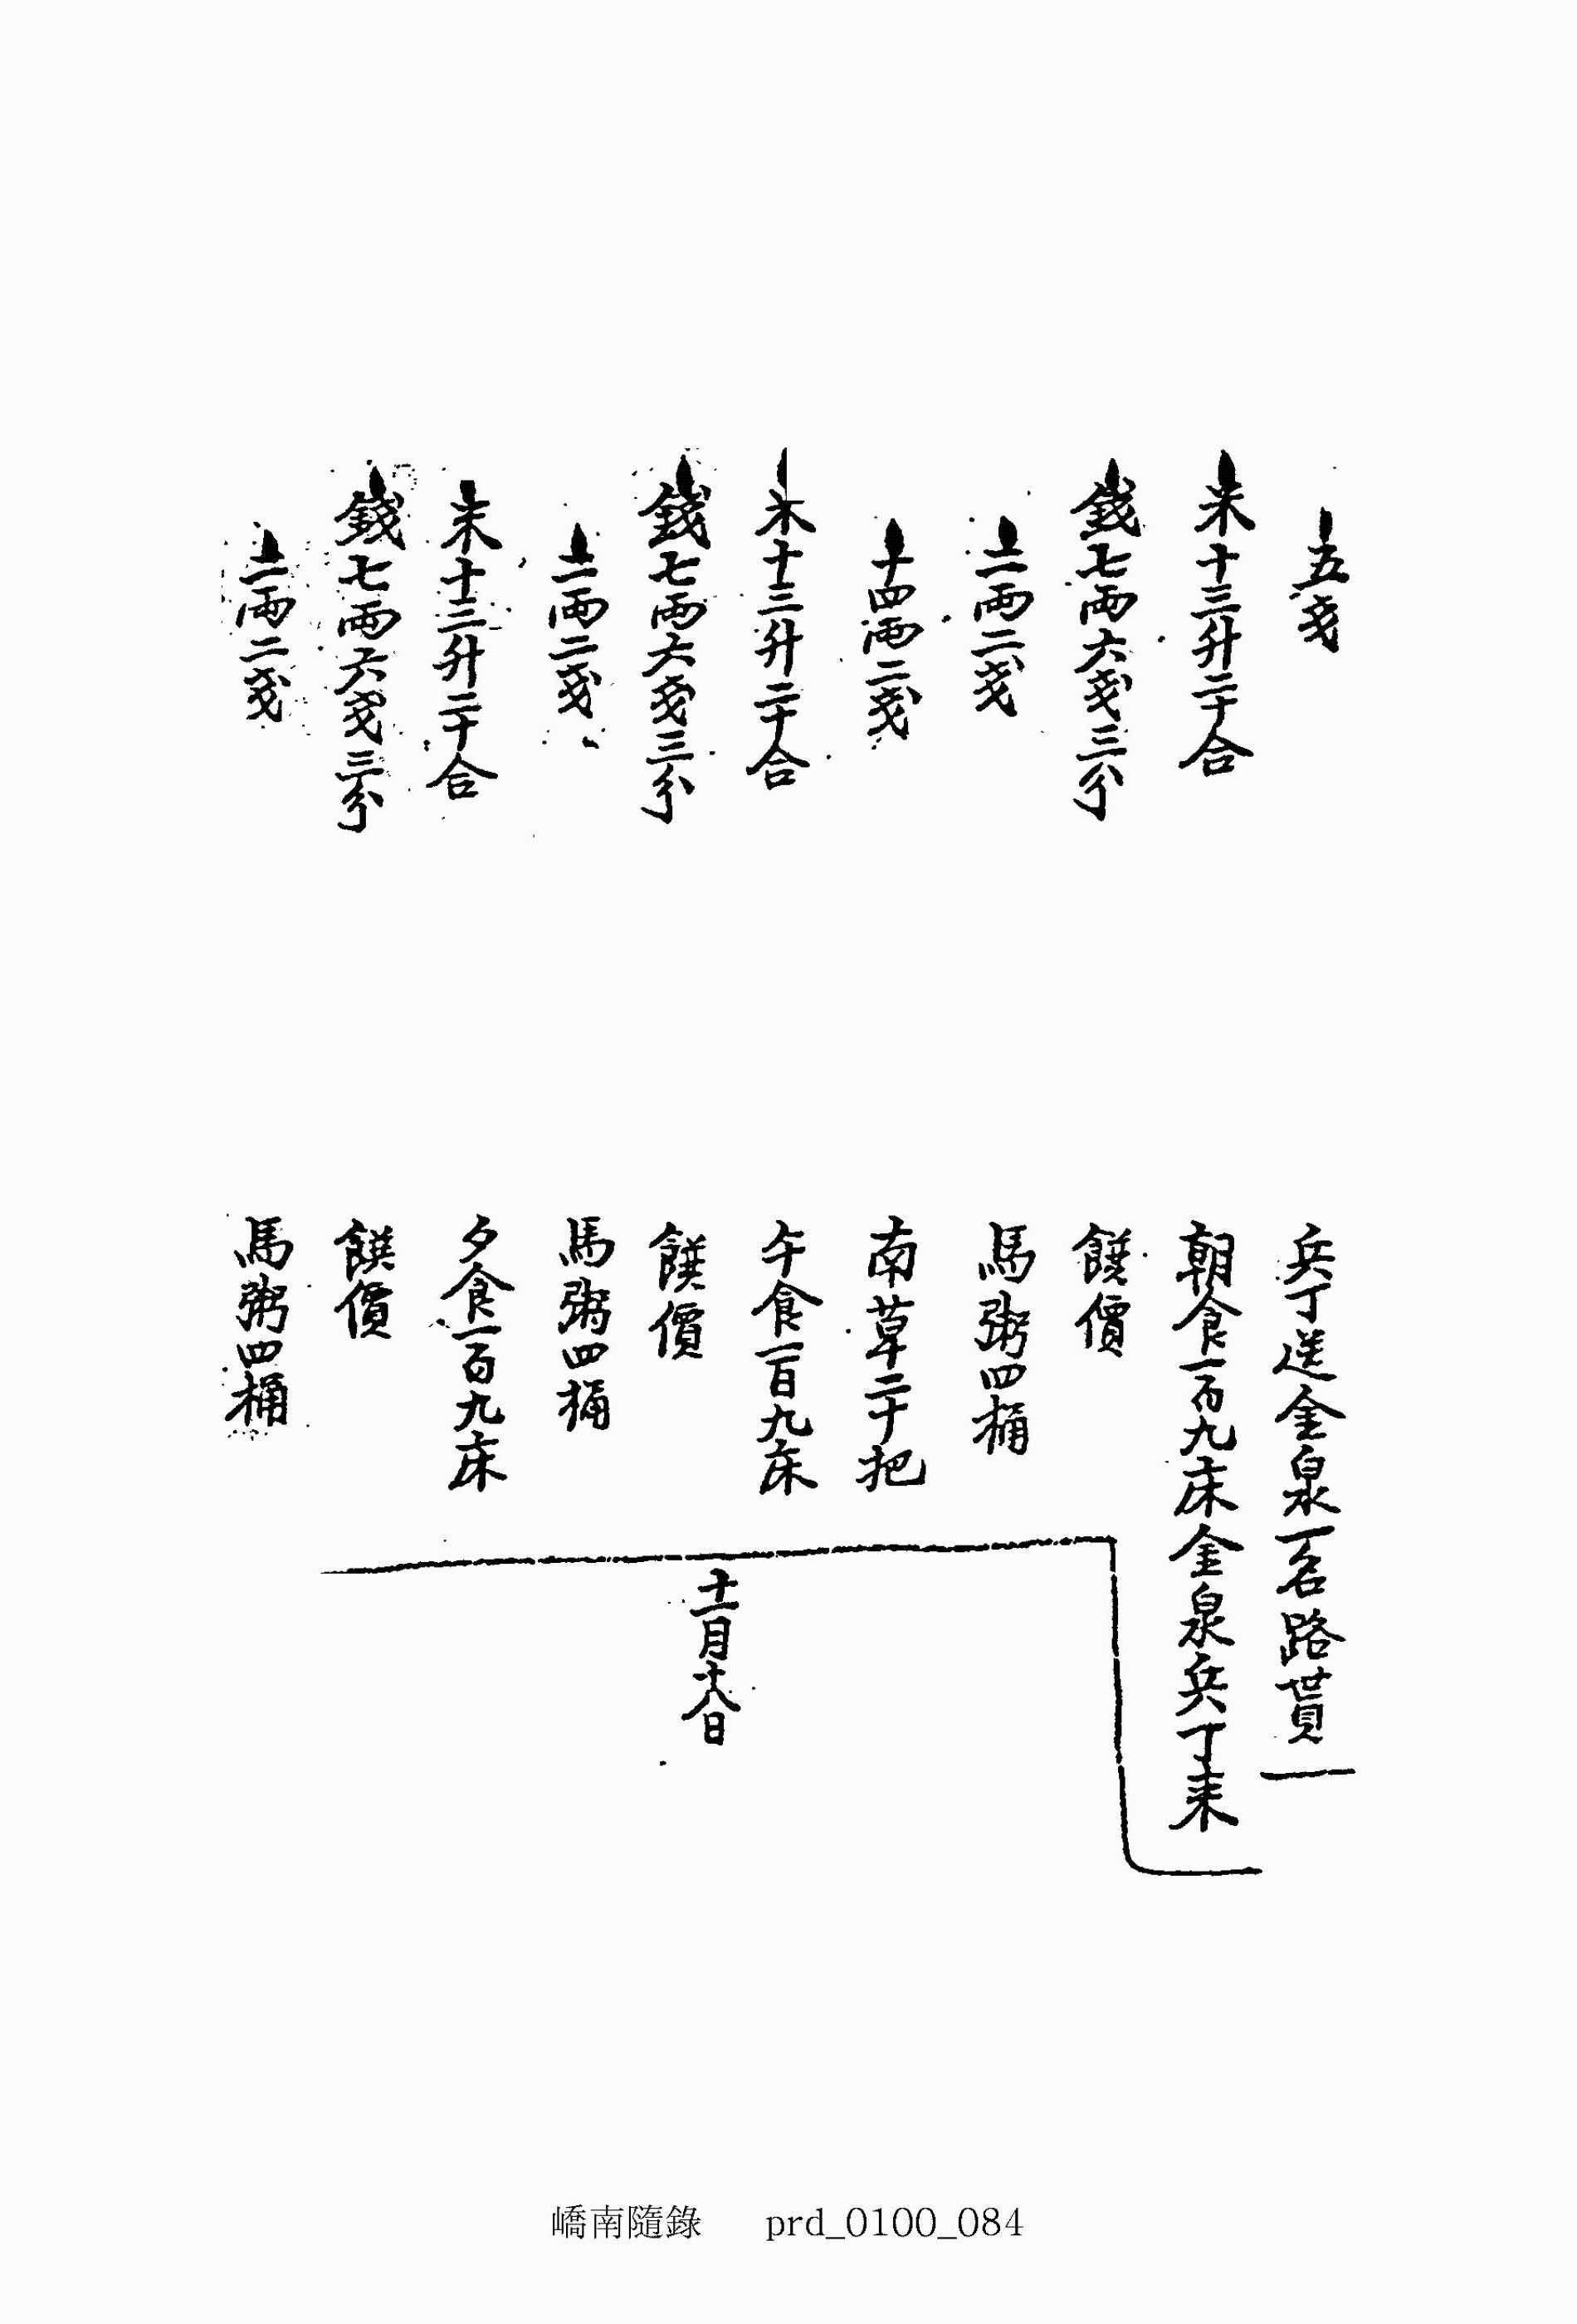 五戔 兵丁送金泉一名路貰
米十三升二十合 朝食一百九床金泉兵丁来
錢七兩六戔三分 饌價
二兩二戔 馬粥四桶
十四兩二戔 南草二十把
米十三升二十合 午食一百九床
錢七兩六戔三分 饌價
十一月十八日
二兩二戔 馬粥四桶
米十三升二十合 夕食一百九床
錢七兩六戔三分 饌價
二兩二戔 馬粥四桶
嶠南隨錄 prd_0100_084